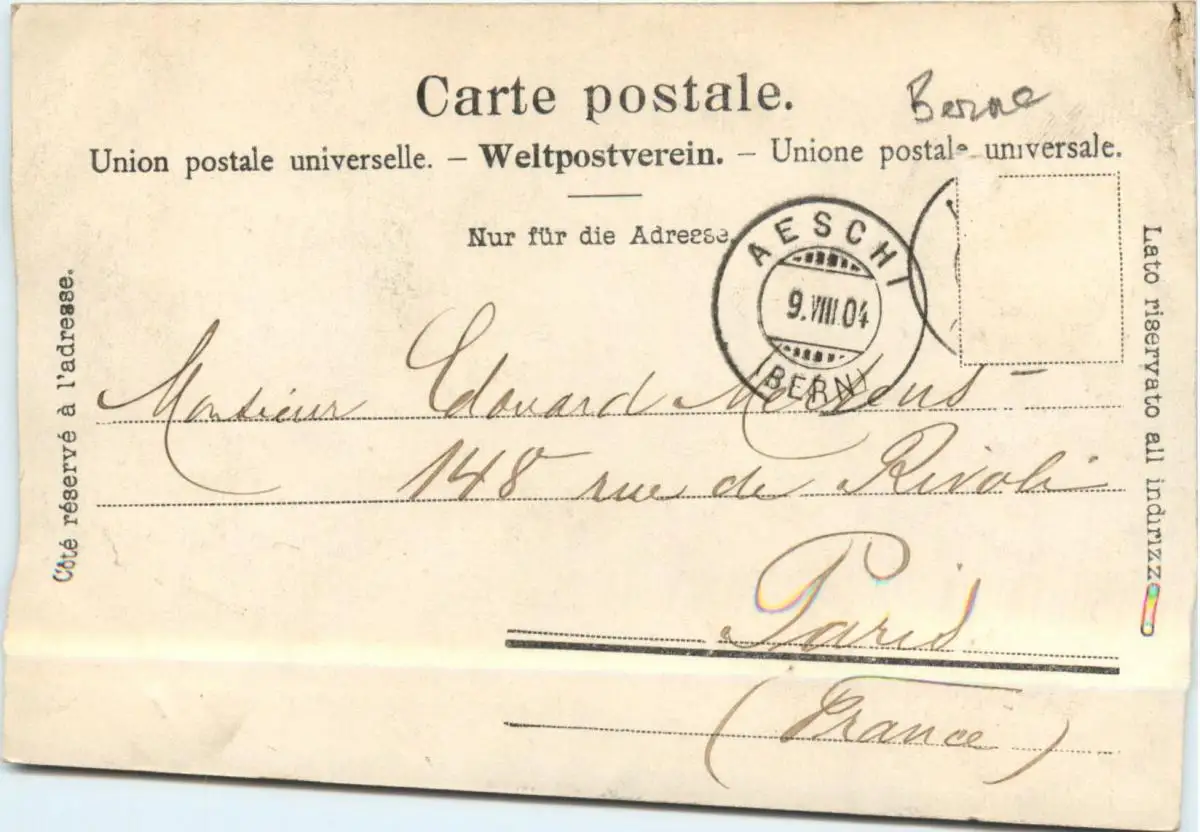 Carte postale.
Berne
Union postale universelle. – Weltpostverein. – Unione postale universale.
Nur für die Adresse.
AESCHI
9.VIII.04
(BERN)
Côté réservé à l'adresse.
Lato riservato all indirizzo
Monsieur Edouard
148 rue de Rivoli
Paris
(France)